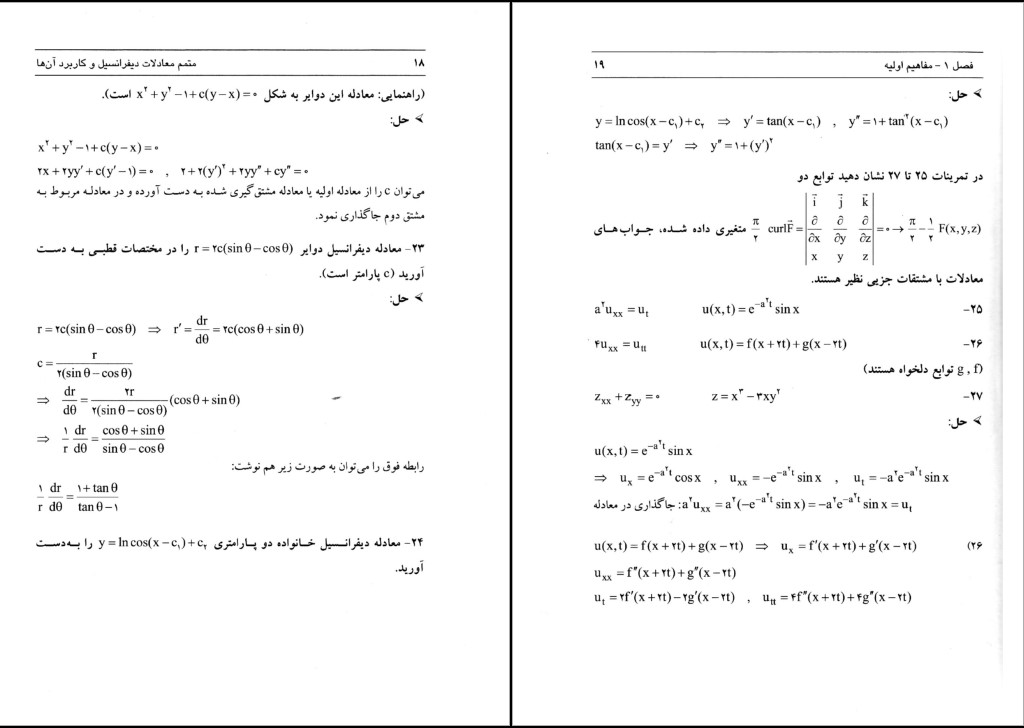 ۱۸ متمم معادلات دیفرانسیل و کاربرد آن‌ها
(راهنمایی: معادله این دوایر به شکل x^۲ + y^۲ − ۱ + c(y − x) = ۰ است).
➢ حل:
x^۲ + y^۲ − ۱ + c(y − x) = ۰
۲x + ۲yy′ + c(y′ − ۱) = ۰ , ۲ + ۲(y′)^۲ + ۲yy″ + cy″ = ۰
می‌توان c را از معادله اولیه یا معادله مشتق‌گیری شده به دست آورده و در معادله مربوط به
مشتق دوم جاگذاری نمود.
۲۳- معادله دیفرانسیل دوایر r = ۲c(sin θ − cos θ) را در مختصات قطبی به دست
آورید (c پارامتر است).
➢ حل:
r = ۲c(sin θ − cos θ) ⇒ r′ = dr/dθ = ۲c(cos θ + sin θ)
c = r / ۲(sin θ − cos θ)
⇒ dr/dθ = ۲r / ۲(sin θ − cos θ) (cos θ + sin θ)
⇒ ۱/r dr/dθ = cos θ + sin θ / sin θ − cos θ
رابطه فوق را می‌توان به صورت زیر هم نوشت:
۱/r dr/dθ = ۱ + tan θ / tan θ − ۱
۲۴- معادله دیفرانسیل خانواده دو پارامتری y = ln cos(x − c₁) + c₂ را به‌دست
آورید.
فصل ۱ – مفاهیم اولیه ۱۹
➢ حل:
y = ln cos(x − c₁) + c₂ ⇒ y′ = tan(x − c₁) , y″ = ۱ + tan^۲(x − c₁)
tan(x − c₁) = y′ ⇒ y″ = ۱ + (y′)^۲
در تمرینات ۲۵ تا ۲۷ نشان دهید توابع دو
متغیری داده شده، جواب‌های π/۲ curlF⃗ = | i⃗ j⃗ k⃗ ; ∂/∂x ∂/∂y ∂/∂z ; x y z | = ۰ → π/۲ − ۱/۲ F(x, y, z)
معادلات با مشتقات جزیی نظیر هستند.
۲۵- a^۲u_xx = u_t u(x, t) = e^(−a^۲t) sin x
۲۶- ۴u_xx = u_tt u(x, t) = f(x + ۲t) + g(x − ۲t)
(g , f توابع دلخواه هستند)
۲۷- z_xx + z_yy = ۰ z = x^۳ − ۳xy^۲
➢ حل:
u(x, t) = e^(−a^۲t) sin x
⇒ u_x = e^(−a^۲t) cos x , u_xx = −e^(−a^۲t) sin x , u_t = −a^۲e^(−a^۲t) sin x
جاگذاری در معادله: a^۲u_xx = a^۲(−e^(−a^۲t) sin x) = −a^۲e^(−a^۲t) sin x = u_t
۲۶) u(x, t) = f(x + ۲t) + g(x − ۲t) ⇒ u_x = f′(x + ۲t) + g′(x − ۲t)
u_xx = f″(x + ۲t) + g″(x − ۲t)
u_t = ۲f′(x + ۲t) − ۲g′(x − ۲t) , u_tt = ۴f″(x + ۲t) + ۴g″(x − ۲t)